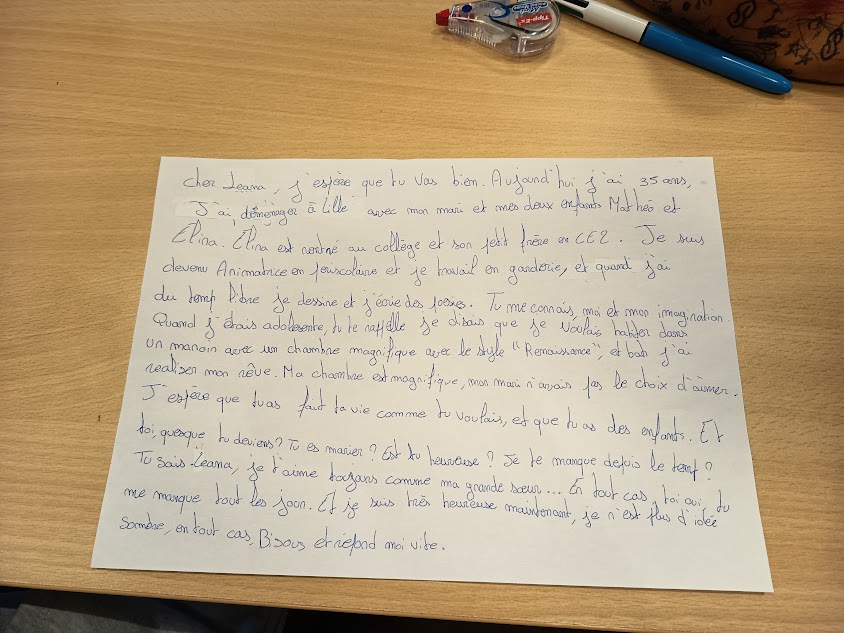 Tipp-Ex
cher Leana, j'espère que tu vas bien. Aujourd'hui j'ai 35 ans,
J'ai déménager à Lille avec mon mari et mes deux enfants Mathéo et
Elina. Elina est rentré au collège et son petit frère en CE2. Je suis
devenu Animatrice en periscolaire, et je travail en garderie, et quand j'ai
du temp libre je dessine et j'écrie des poèses. Tu me connais, moi et mon imagination
Quand j'étais adolesente, tu te rappelle je disais que je voulais habiter dans
un manoir avec un chambre magnifique avec le style "Renaissance", et bah j'ai
realiser mon rêve. Ma chambre est magnifique, mon mari n'avais pas le choix d'aimer.
J'espère que tu as fait ta vie comme tu voulais, et que tu as des enfants. Et
toi, quesque tu deviens? Tu es marier? Est tu heureuse? Je te manque depuis le temp?
Tu sais Leana, je t'aime toujours comme ma grande sœur... En tout cas, toi oui, tu
me manque tout les jour. Et je suis très heureuse maintenant, je n'est plus d'idée
sombre, en tout cas, Bisous et répond moi vite.